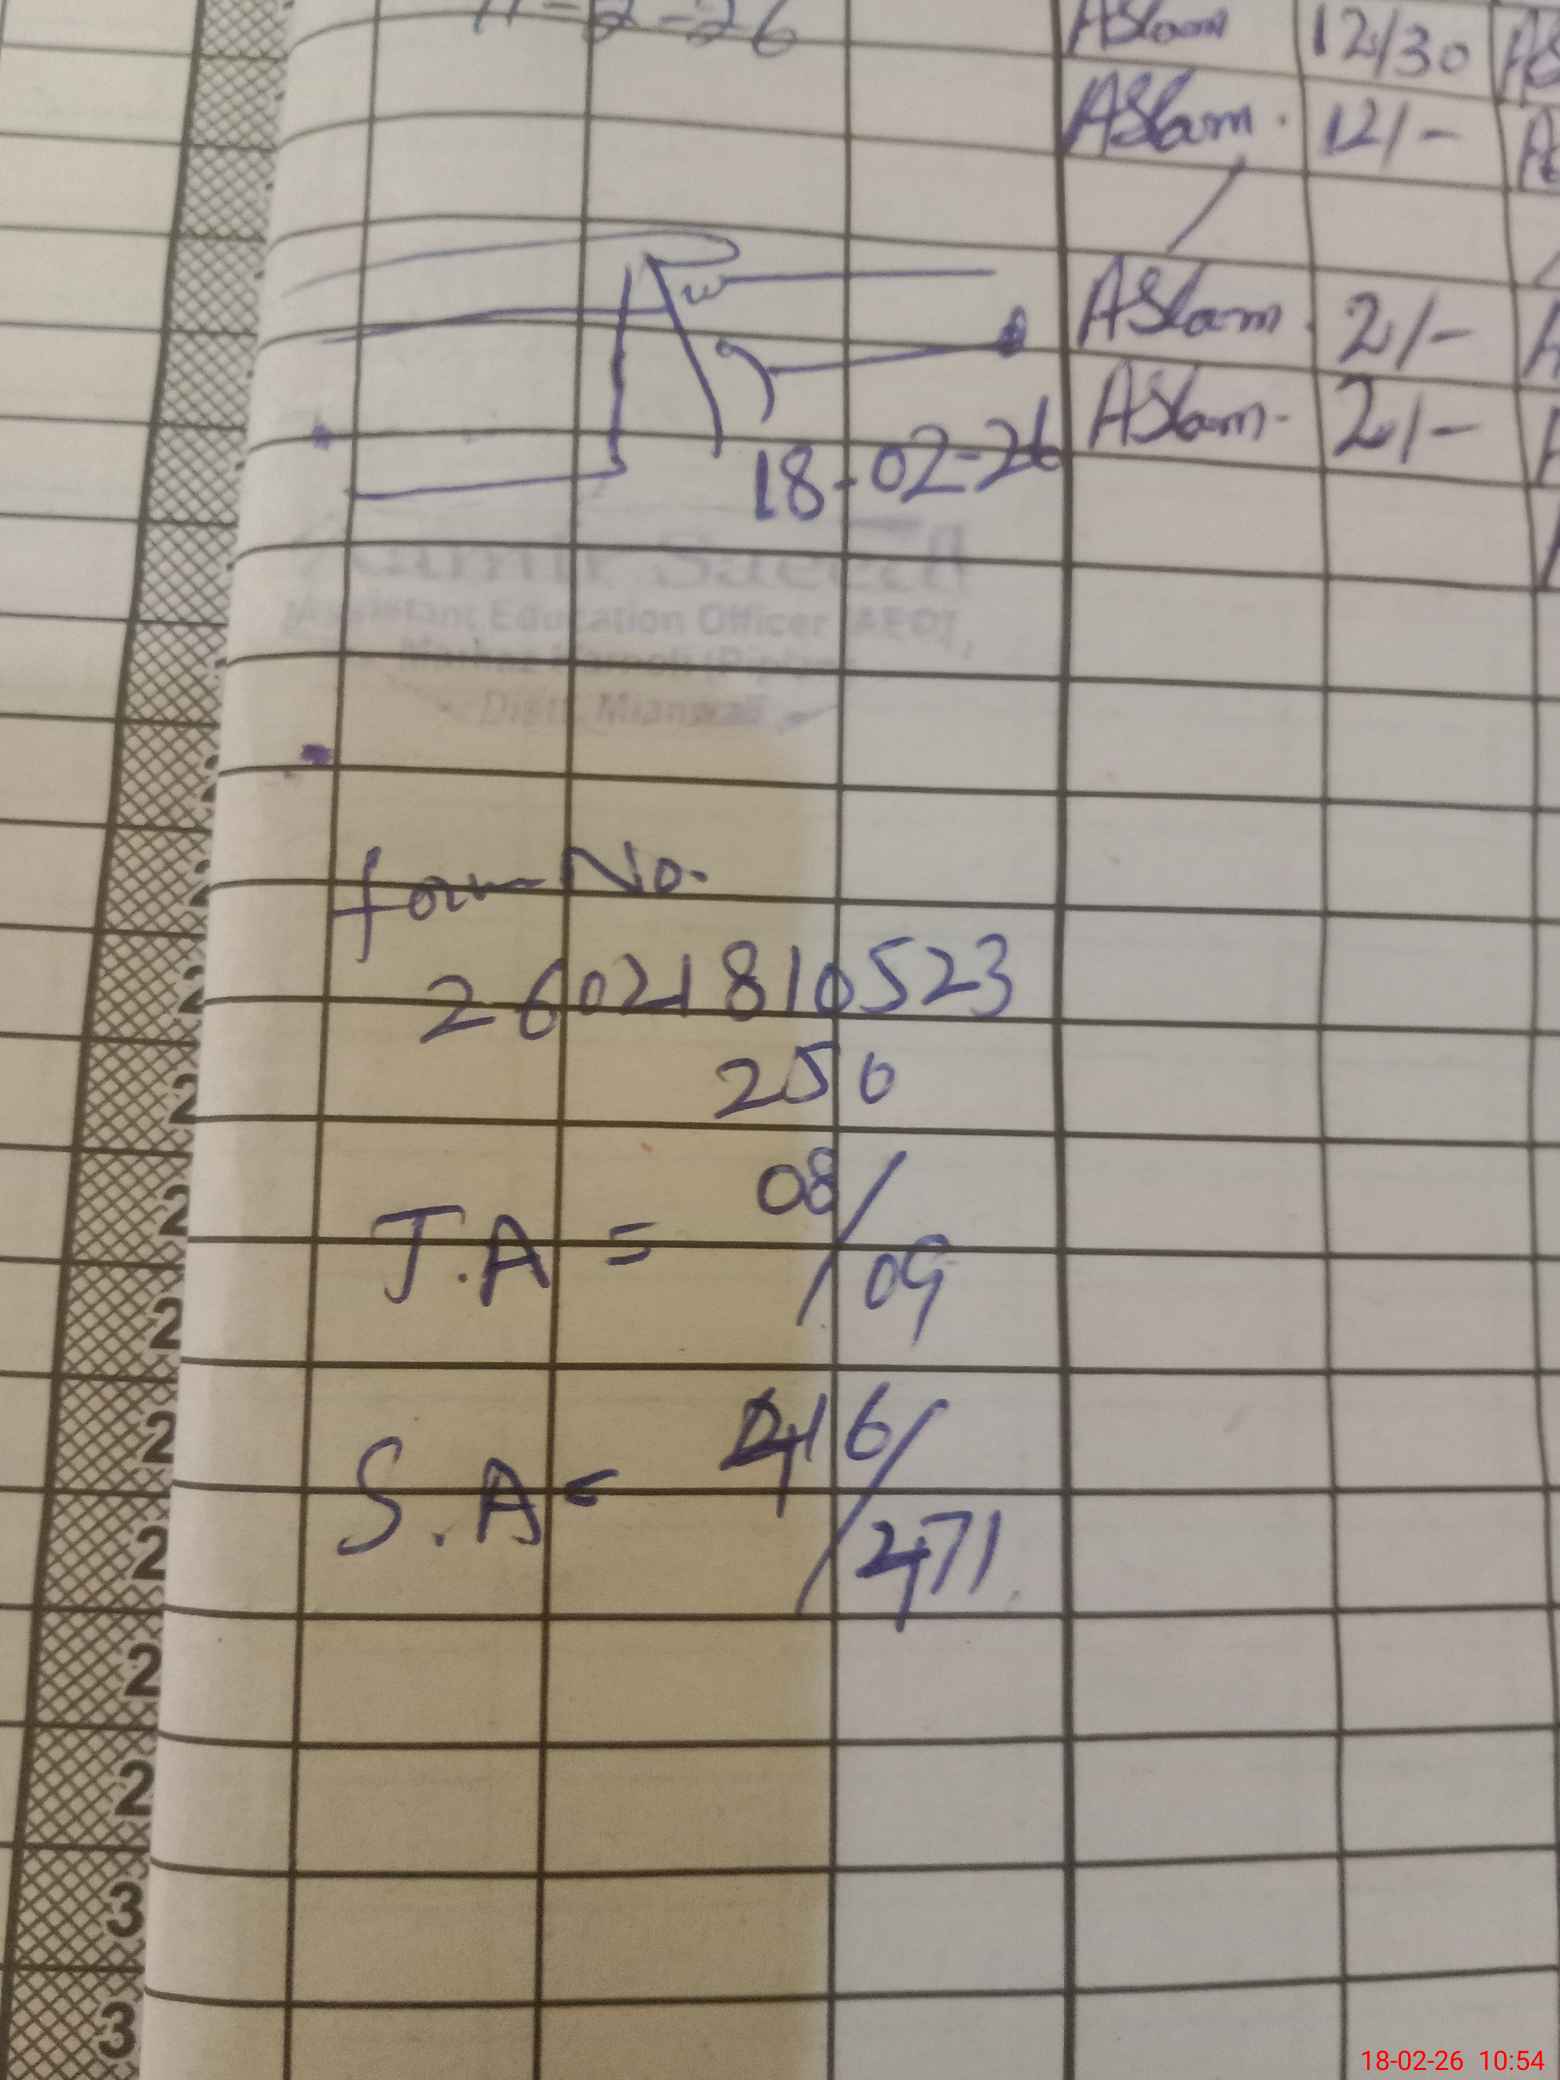 11-2-26
ASlam 12/30
ASlam. 12/-
ASlam 2/-
ASlam. 2/-
18-02-26
Saeed
Assistant Education Officer (AEO),
Distt. Mianwali
form No.
26021810523
250
T.A = 08/09
S.A = 416/471
2
2
2
2
2
2
2
2
3
3
18-02-26 10:54